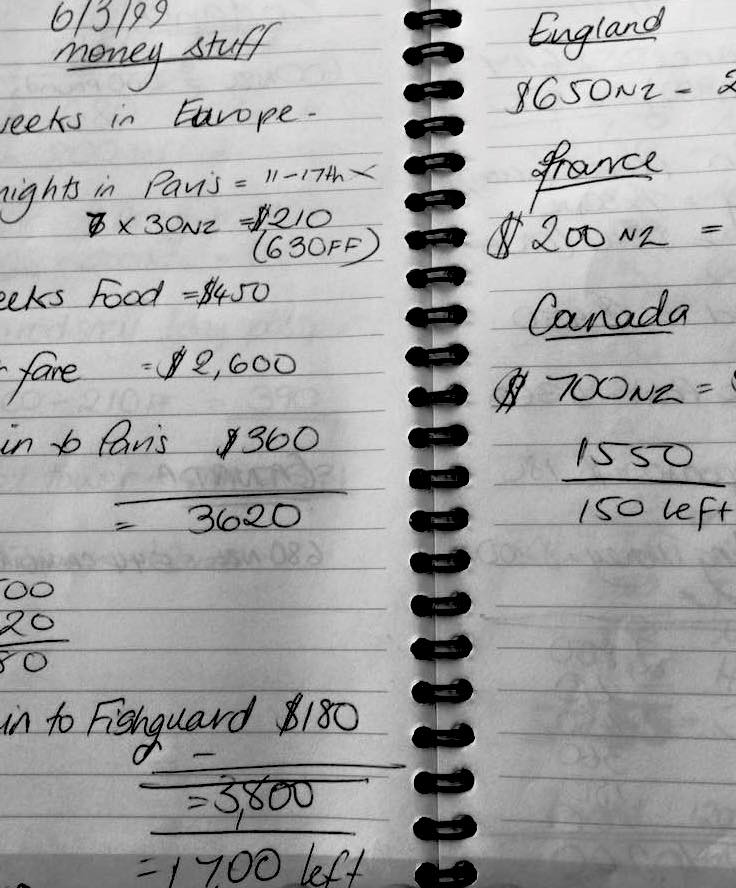 6/3/99
money stuff
weeks in Europe -
nights in Paris = 11-17th
7 x 30NZ = $210
(630FF)
eeks Food = $450
fare = $2,600
in to Paris $360
= 3620
00
20
80
in to Fishguard $180
= 3,800
= 1700 left
England
$650NZ - 2
France
$200 NZ =
Canada
$700NZ =
1550
150 left